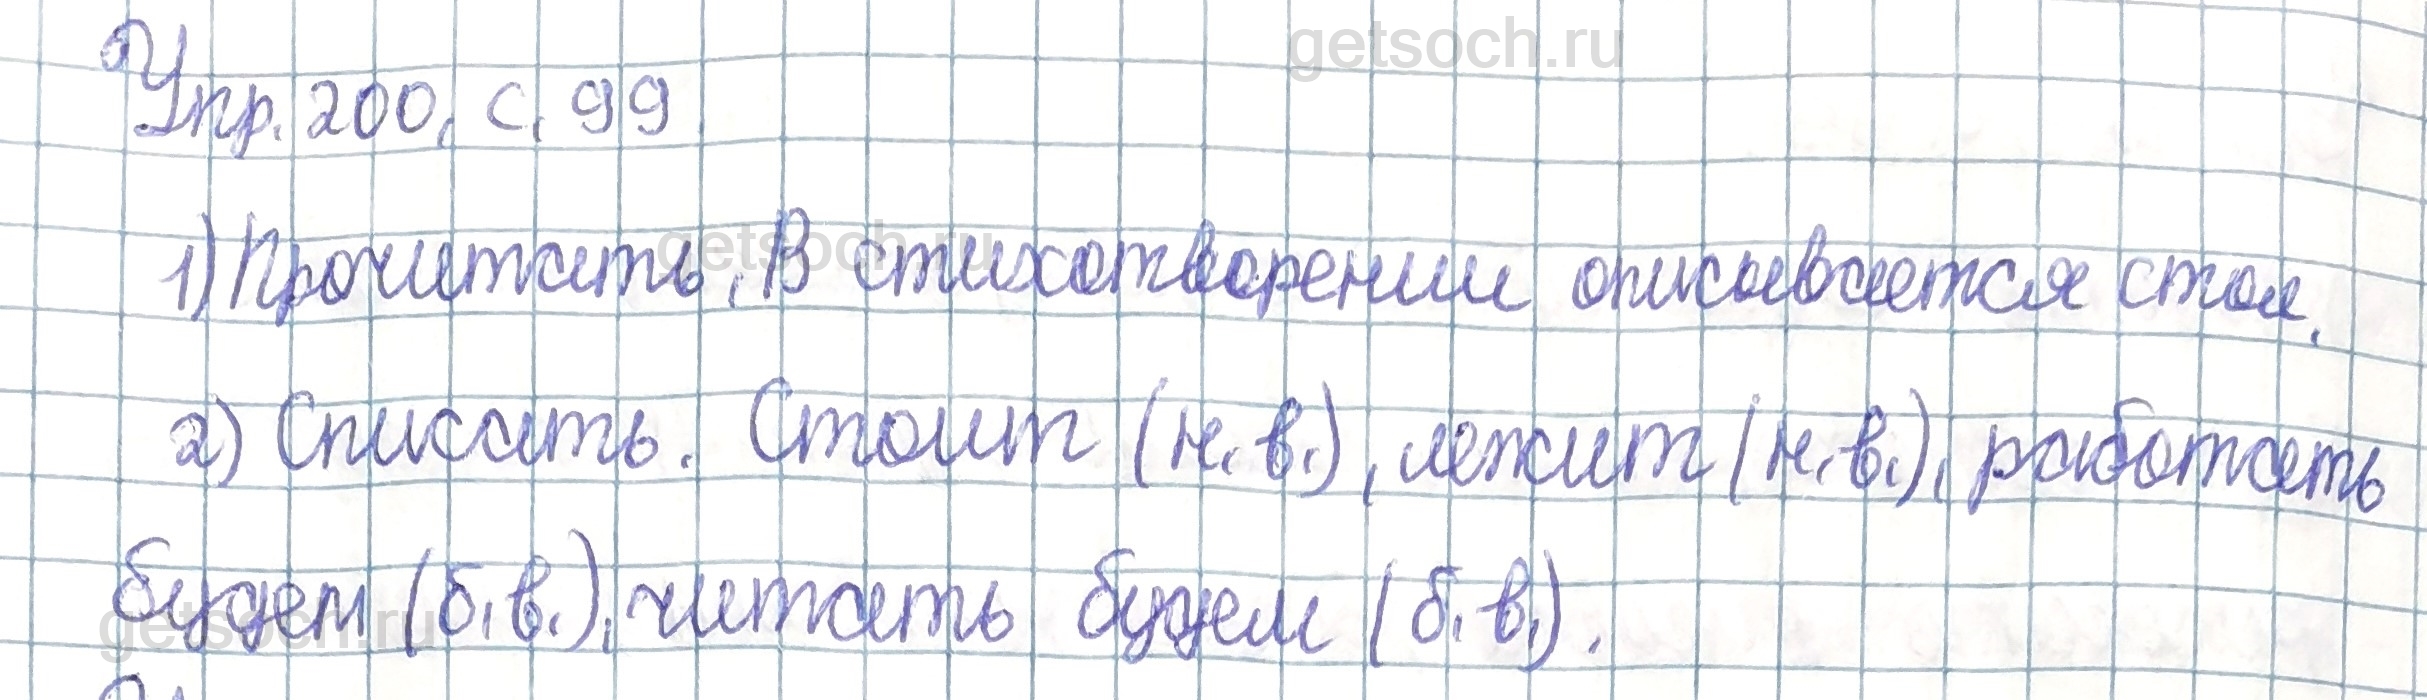 getsoch.ru
Упр. 200, с. 99
getsoch.ru
1) Прочитать. В стихотворении описывается стол.
2) Списать. Стоит (н.в.), лежит (н.в.), работать
будем (б.в.), читать будем (б.в.).
getsoch.ru